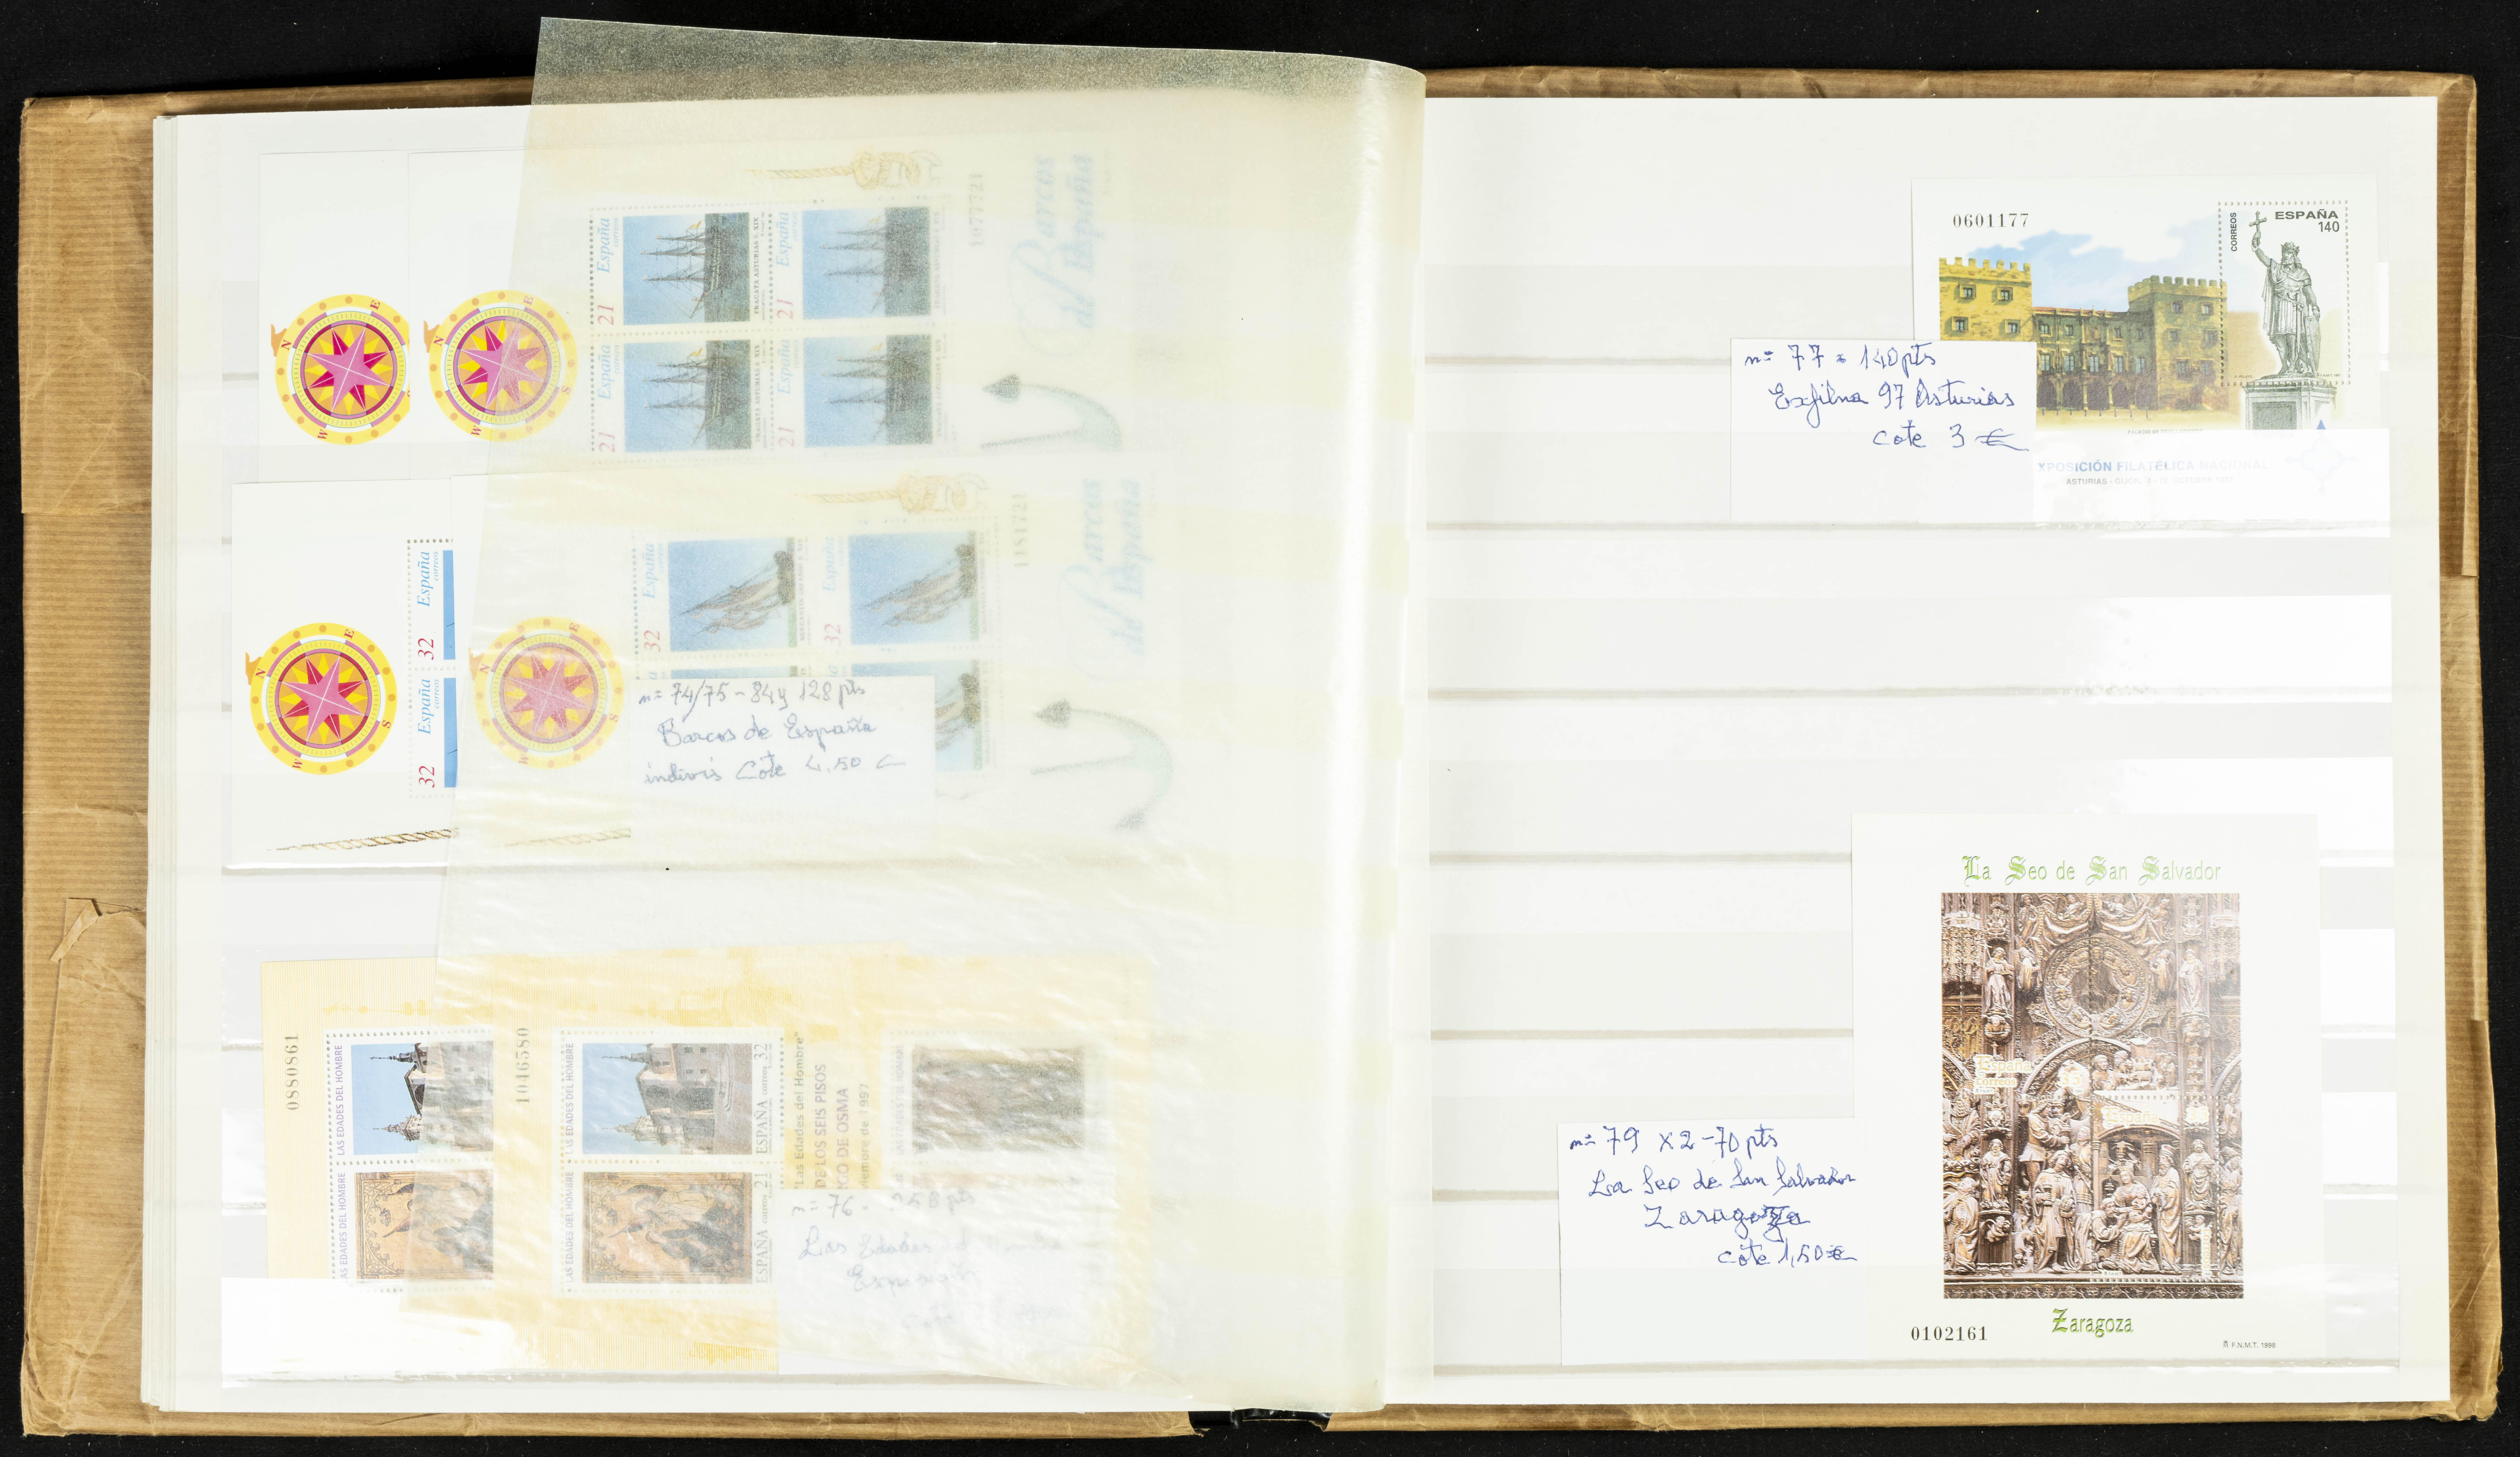 Barcos
de España
1077721
España
correos
21
FRAGATA ASTURIAS S. XIX
España
21
España
correos
21
FRAGATA ASTURIAS S. XIX
España
21
N
E
S
W
N
E
S
W
Barcos
de España
1181721
España
correos
32
España
correos
32
España
32
España
32
N
E
S
W
N
E
S
W
nº 74/75 - 84 y 128 pts
Barcos de España
indivis Cote 4.50 €
0880861
LAS EDADES DEL HOMBRE
LAS EDADES DEL HOMBRE
1046580
LAS EDADES DEL HOMBRE
ESPAÑA correos 32
LAS EDADES DEL HOMBRE
ESPAÑA correos 21
"Las Edades del Hombre"
DE LOS SEIS PISOS
DE OSMA
de 1997
nº 76 -
Las Edades
0601177
CORREOS
ESPAÑA
140
nº 77 = 140 pts
Exfilna 97 Asturias
cote 3 €
XPOSICIÓN FILATÉLICA NACIONAL
ASTURIAS - GIJÓN,
La Seo de San Salvador
España
correos
35
España
Zaragoza
0102161
F.N.M.T. 1998
nº 79 x2 - 70 pts
La Seo de San Salvador
Zaragoza
cote 1,50 €